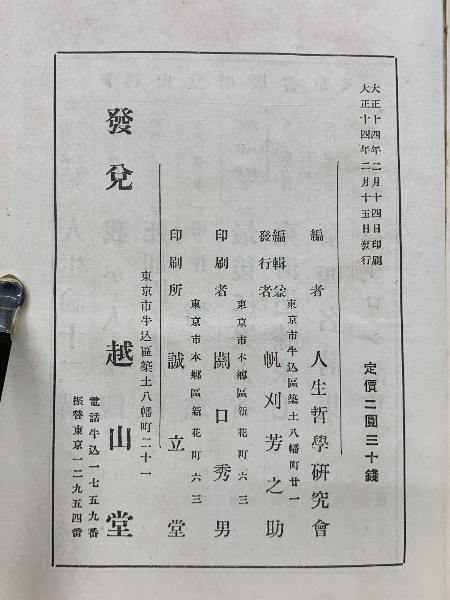 大正十四年二月十四日印刷
大正十四年二月十五日發行
定價二圓三十錢
編者 人生哲學研究會
東京市牛込區築土八幡町廿一
編輯兼發行者 帆刈芳之助
東京市本鄕區新花町六三
印刷者 關口秀男
東京市本鄕區新花町六三
印刷所 誠立堂
東京市牛込區築土八幡町二十一
發兌 越山堂
電話牛込一七五九番
振替東京一二九五四番